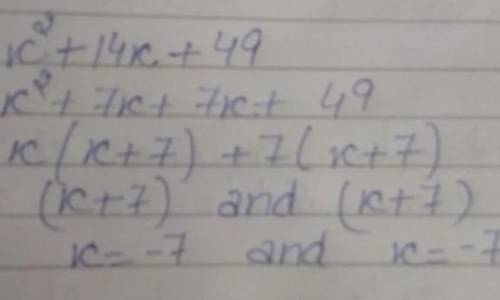 x² + 14x + 49
x² + 7x + 7x + 49
x(x+7) + 7(x+7)
(x+7) and (x+7)
x = -7 and x = -7